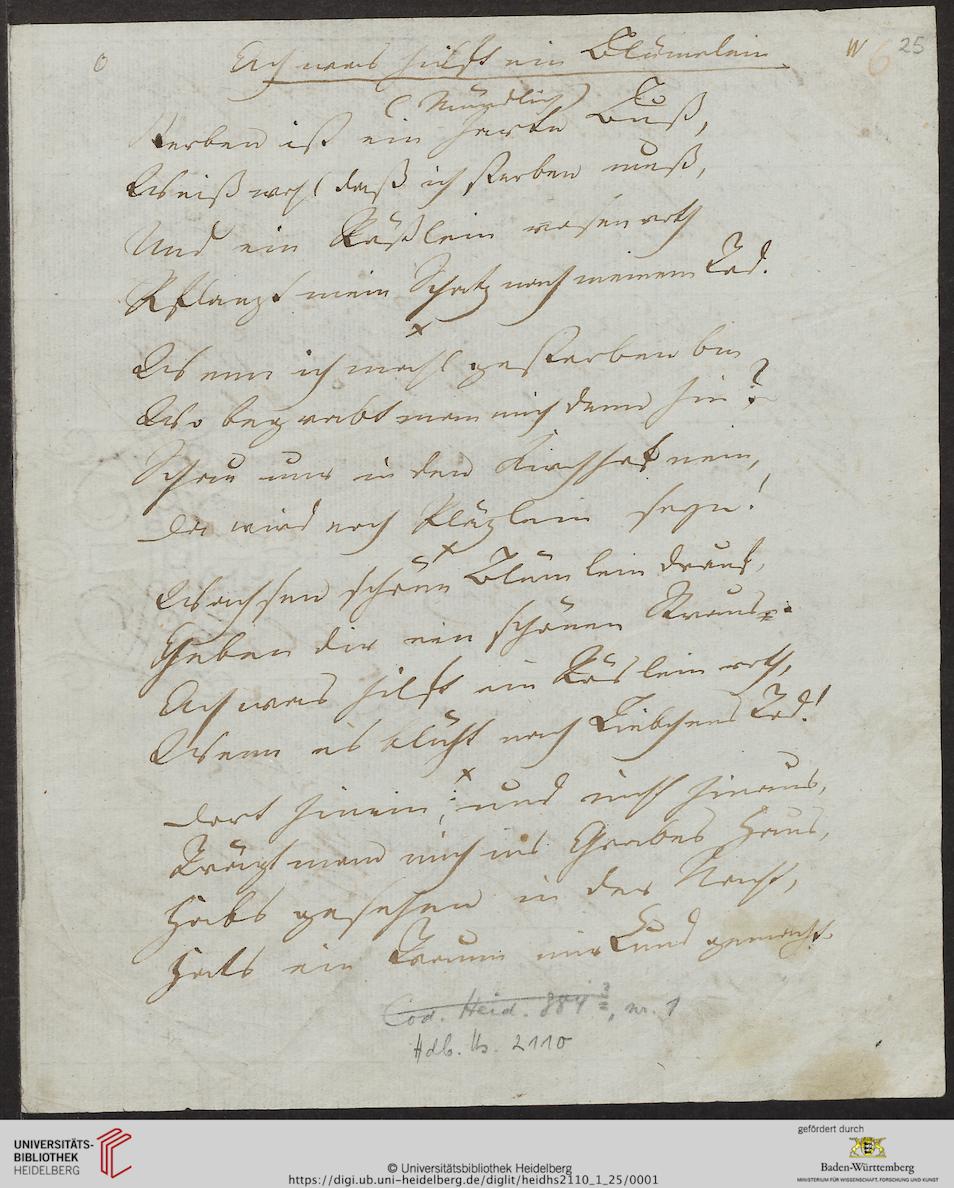 0 Ach was hilft ein Blümelein. W 6 25
(Mündlich)
Sterben ist ein harte Buß,
Weiß wohl daß ich sterben muß,
Und ein Rößlein rosenroth
Pflanzt mein Schatz nach meinem Tod.
x
Wenn ich mahl gestorben bin
Wo begrabt man mich denn hin?
Schau nur in den Kirchhof nein,
Da wird noch Pläzlein seyn!
x
Wachsen schöne Blümlein drauf,
Geben dir ein schönen Straus.
Ach was hilft ein Röslein roth,
Wenn es blüht nach Liebchens Tod!
x
Dort hinein, und nicht hinaus,
Trägt man mich ins Grabes Haus,
Habs gesehen in der Nacht,
Hats ein Traum mir kund gemacht.
Cod. Heid. , nr. 1
Hdb. Hs. 2110
UNIVERSITÄTS-
BIBLIOTHEK
HEIDELBERG
© Universitätsbibliothek Heidelberg
https://digi.ub.uni-heidelberg.de/diglit/heidhs2110_1_25/0001
gefördert durch
Baden-Württemberg
MINISTERIUM FÜR WISSENSCHAFT, FORSCHUNG UND KUNST